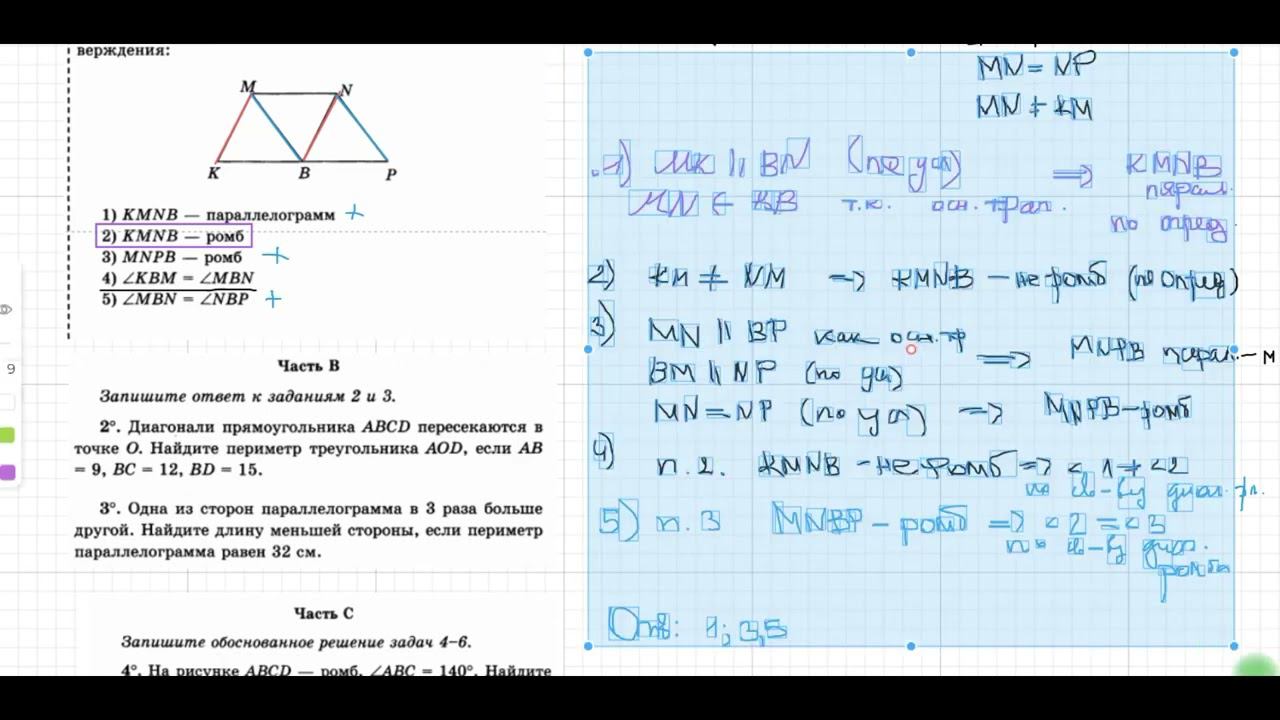 верждения:
M N
K B P
1) KMNB — параллелограмм +
2) KMNB — ромб
3) MNPB — ромб +
4) ∠KBM = ∠MBN
5) ∠MBN = ∠NBP +
Часть В
Запишите ответ к заданиям 2 и 3.
2°. Диагонали прямоугольника ABCD пересекаются в
точке O. Найдите периметр треугольника AOD, если AB
= 9, BC = 12, BD = 15.
3°. Одна из сторон параллелограмма в 3 раза больше
другой. Найдите длину меньшей стороны, если периметр
параллелограмма равен 32 см.
Часть С
Запишите обоснованное решение задач 4–6.
4°. На рисунке ABCD — ромб, ∠ABC = 140°. Найдите
9
MN = NP
MN ≠ KM
1) MK || BN (по усл) => KMNB
парал.
MN || KB т.к. осн. трап.
по опред.
2) KM ≠ NM => KMNB – не ромб (по опред)
3) MN || BP как осн. тр => MNPB парал – м
BM || NP (по усл)
MN = NP (по усл) => MNPB – ромб
4) п. 2. KMNB – не ромб => < 1 ≠ < 2
по св-ву диаг.
5) п. 3 MNBP – ромб => < 2 = < 3
по св-ву диаг.
ромба
Отв: 1; 3,5